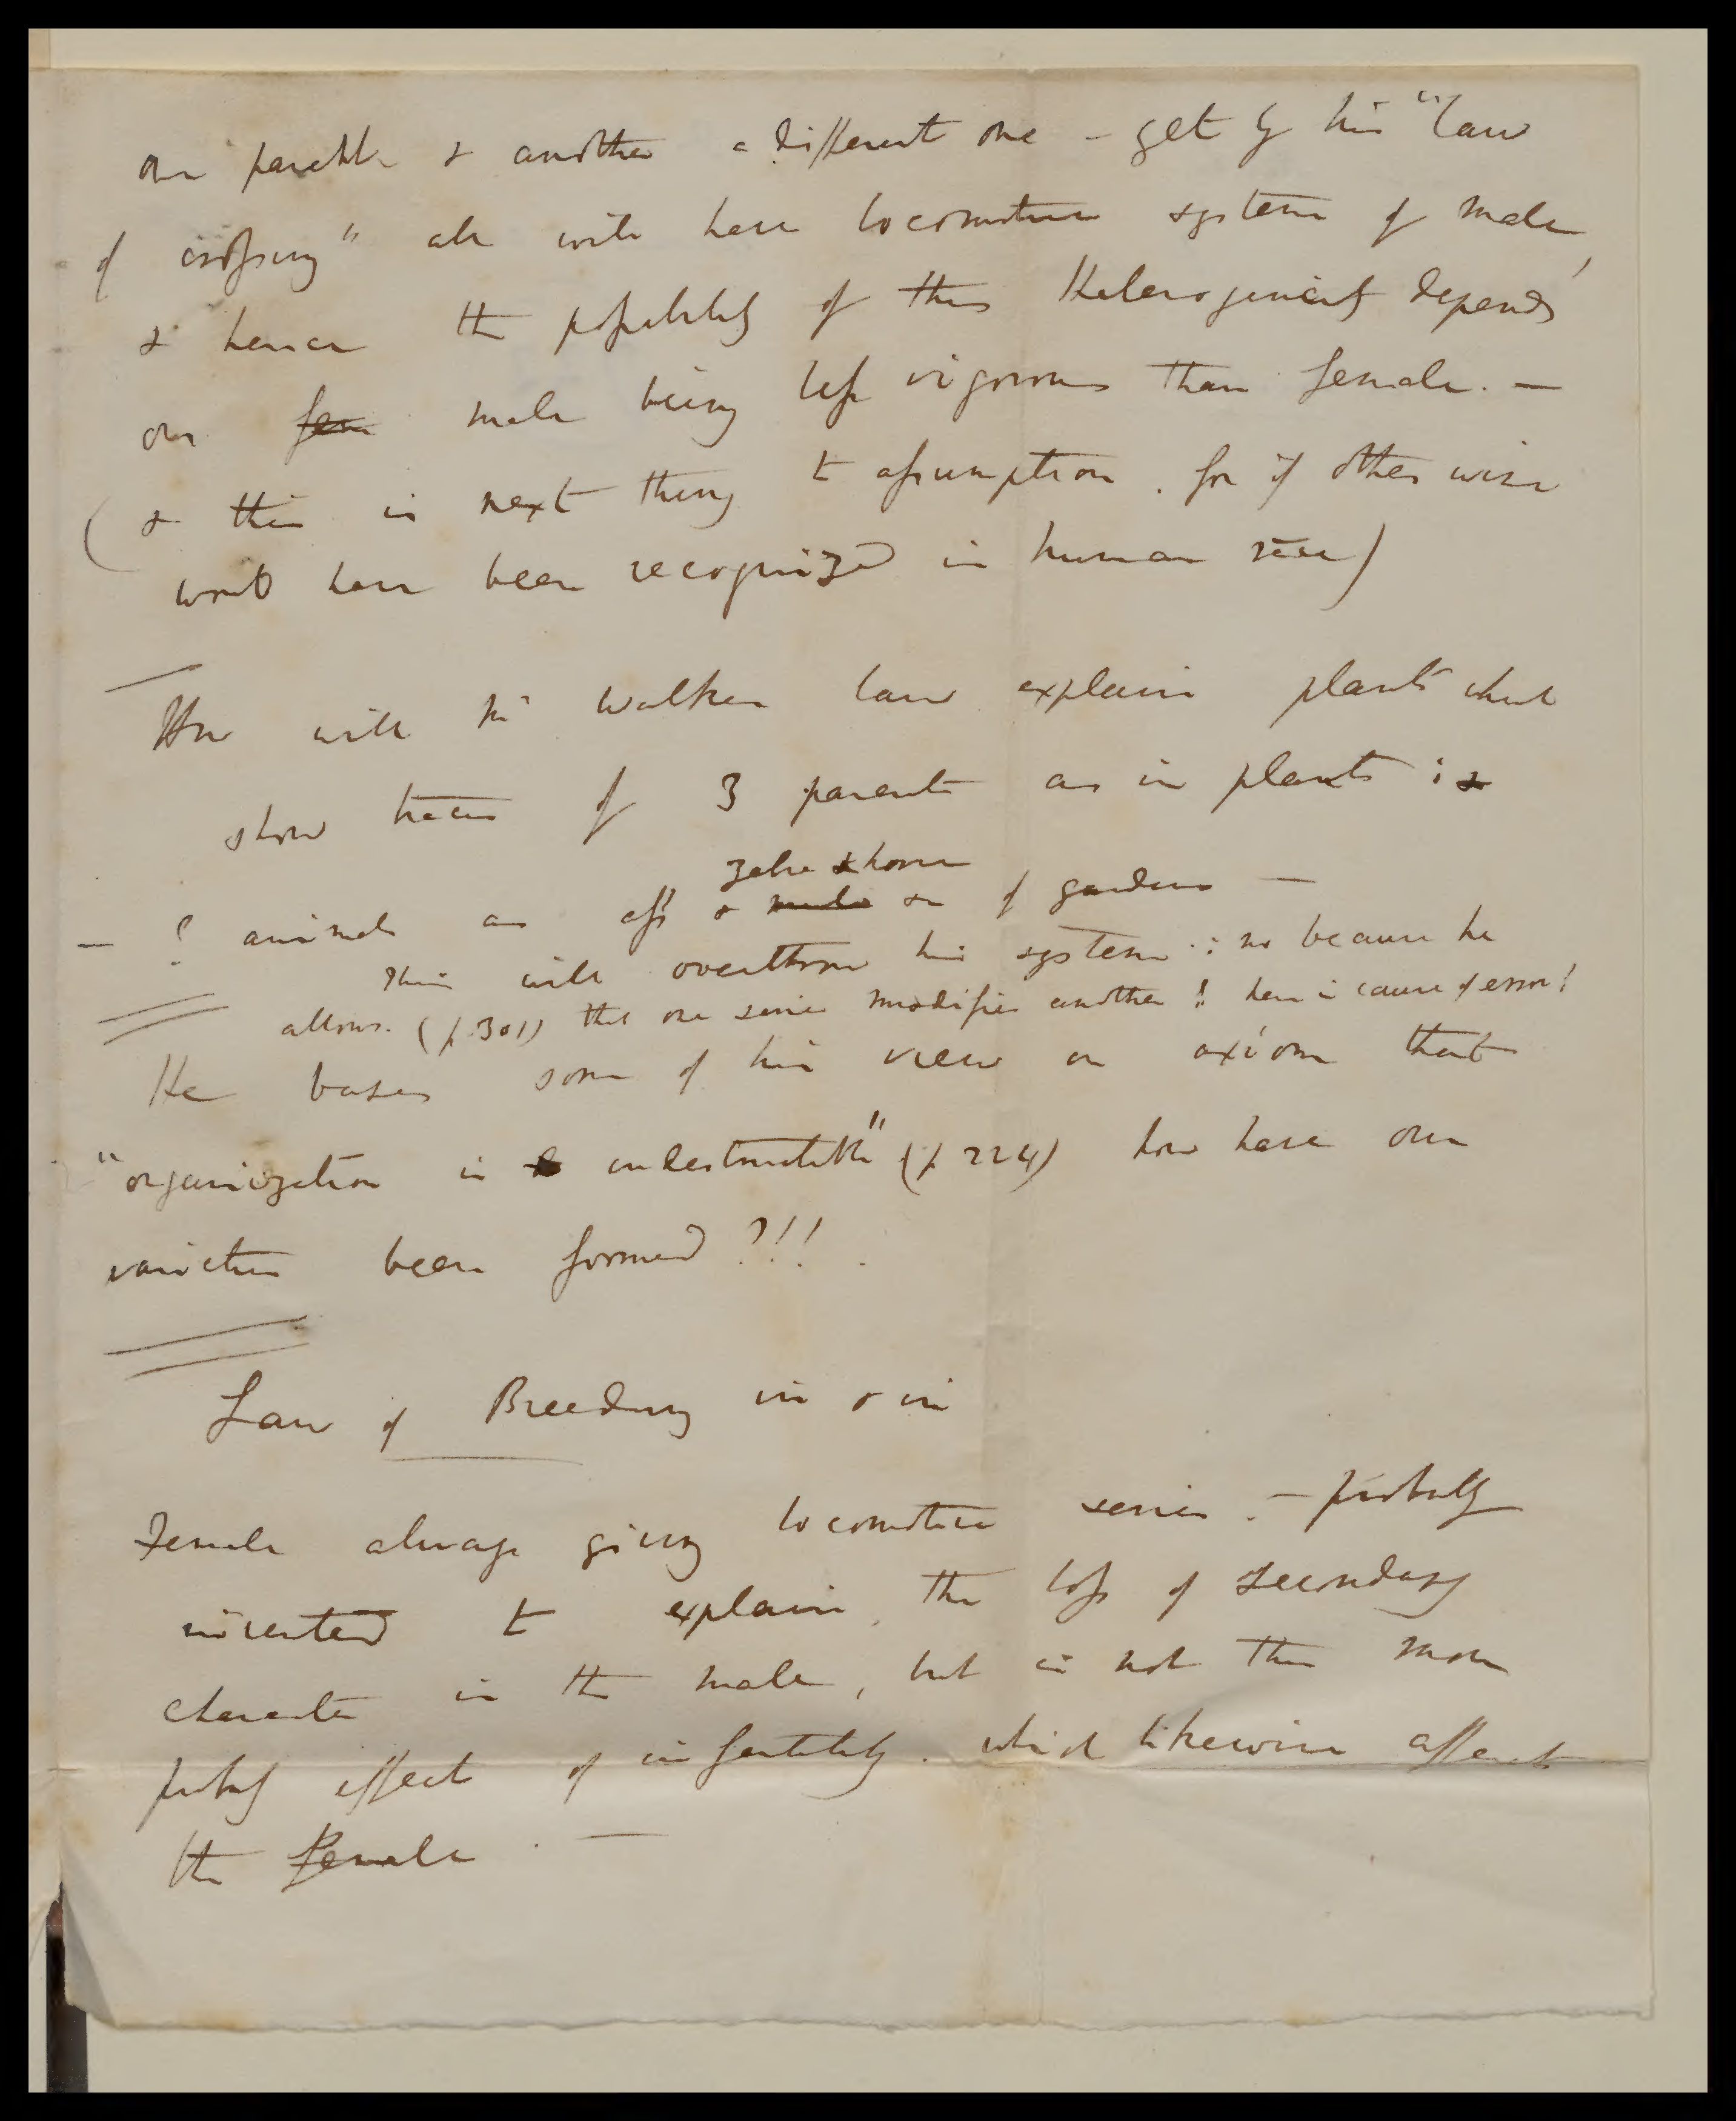 one parent & another a different one – yet by his "law
of crossing" all will have locomotive system of male,
& hence the possibility of this Heterogeneity depends
on fem male being less vigorous than female. —
(& this is next thing to assumption. for if other wise
would have been recognized in human race)
How will Mr Walker law explain plants what
show traces of 3 parents as in plants: &
zebra & horse
— ? animals as ass & mule & of gardens —
This will overthrow his system: no because he
allows. (p. 301) that one series modifies another! here is cause of error!
He bases some of his view on axiom that
"organization is indestructible" (p 224) how have our
varieties been formed?!!!
Law of Breeding in & in
Female always giving locomotive series. – probably
invented to explain, the loss of secondary
character in the male, but is not this more
probably effect of infertility. which likewise affects
the female. —